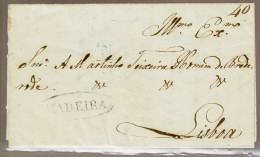 40
Illmo. Exmo.
Snr. A Martinho Teixeira Homem de Brede
rode.
MADEIRA
Lisboa